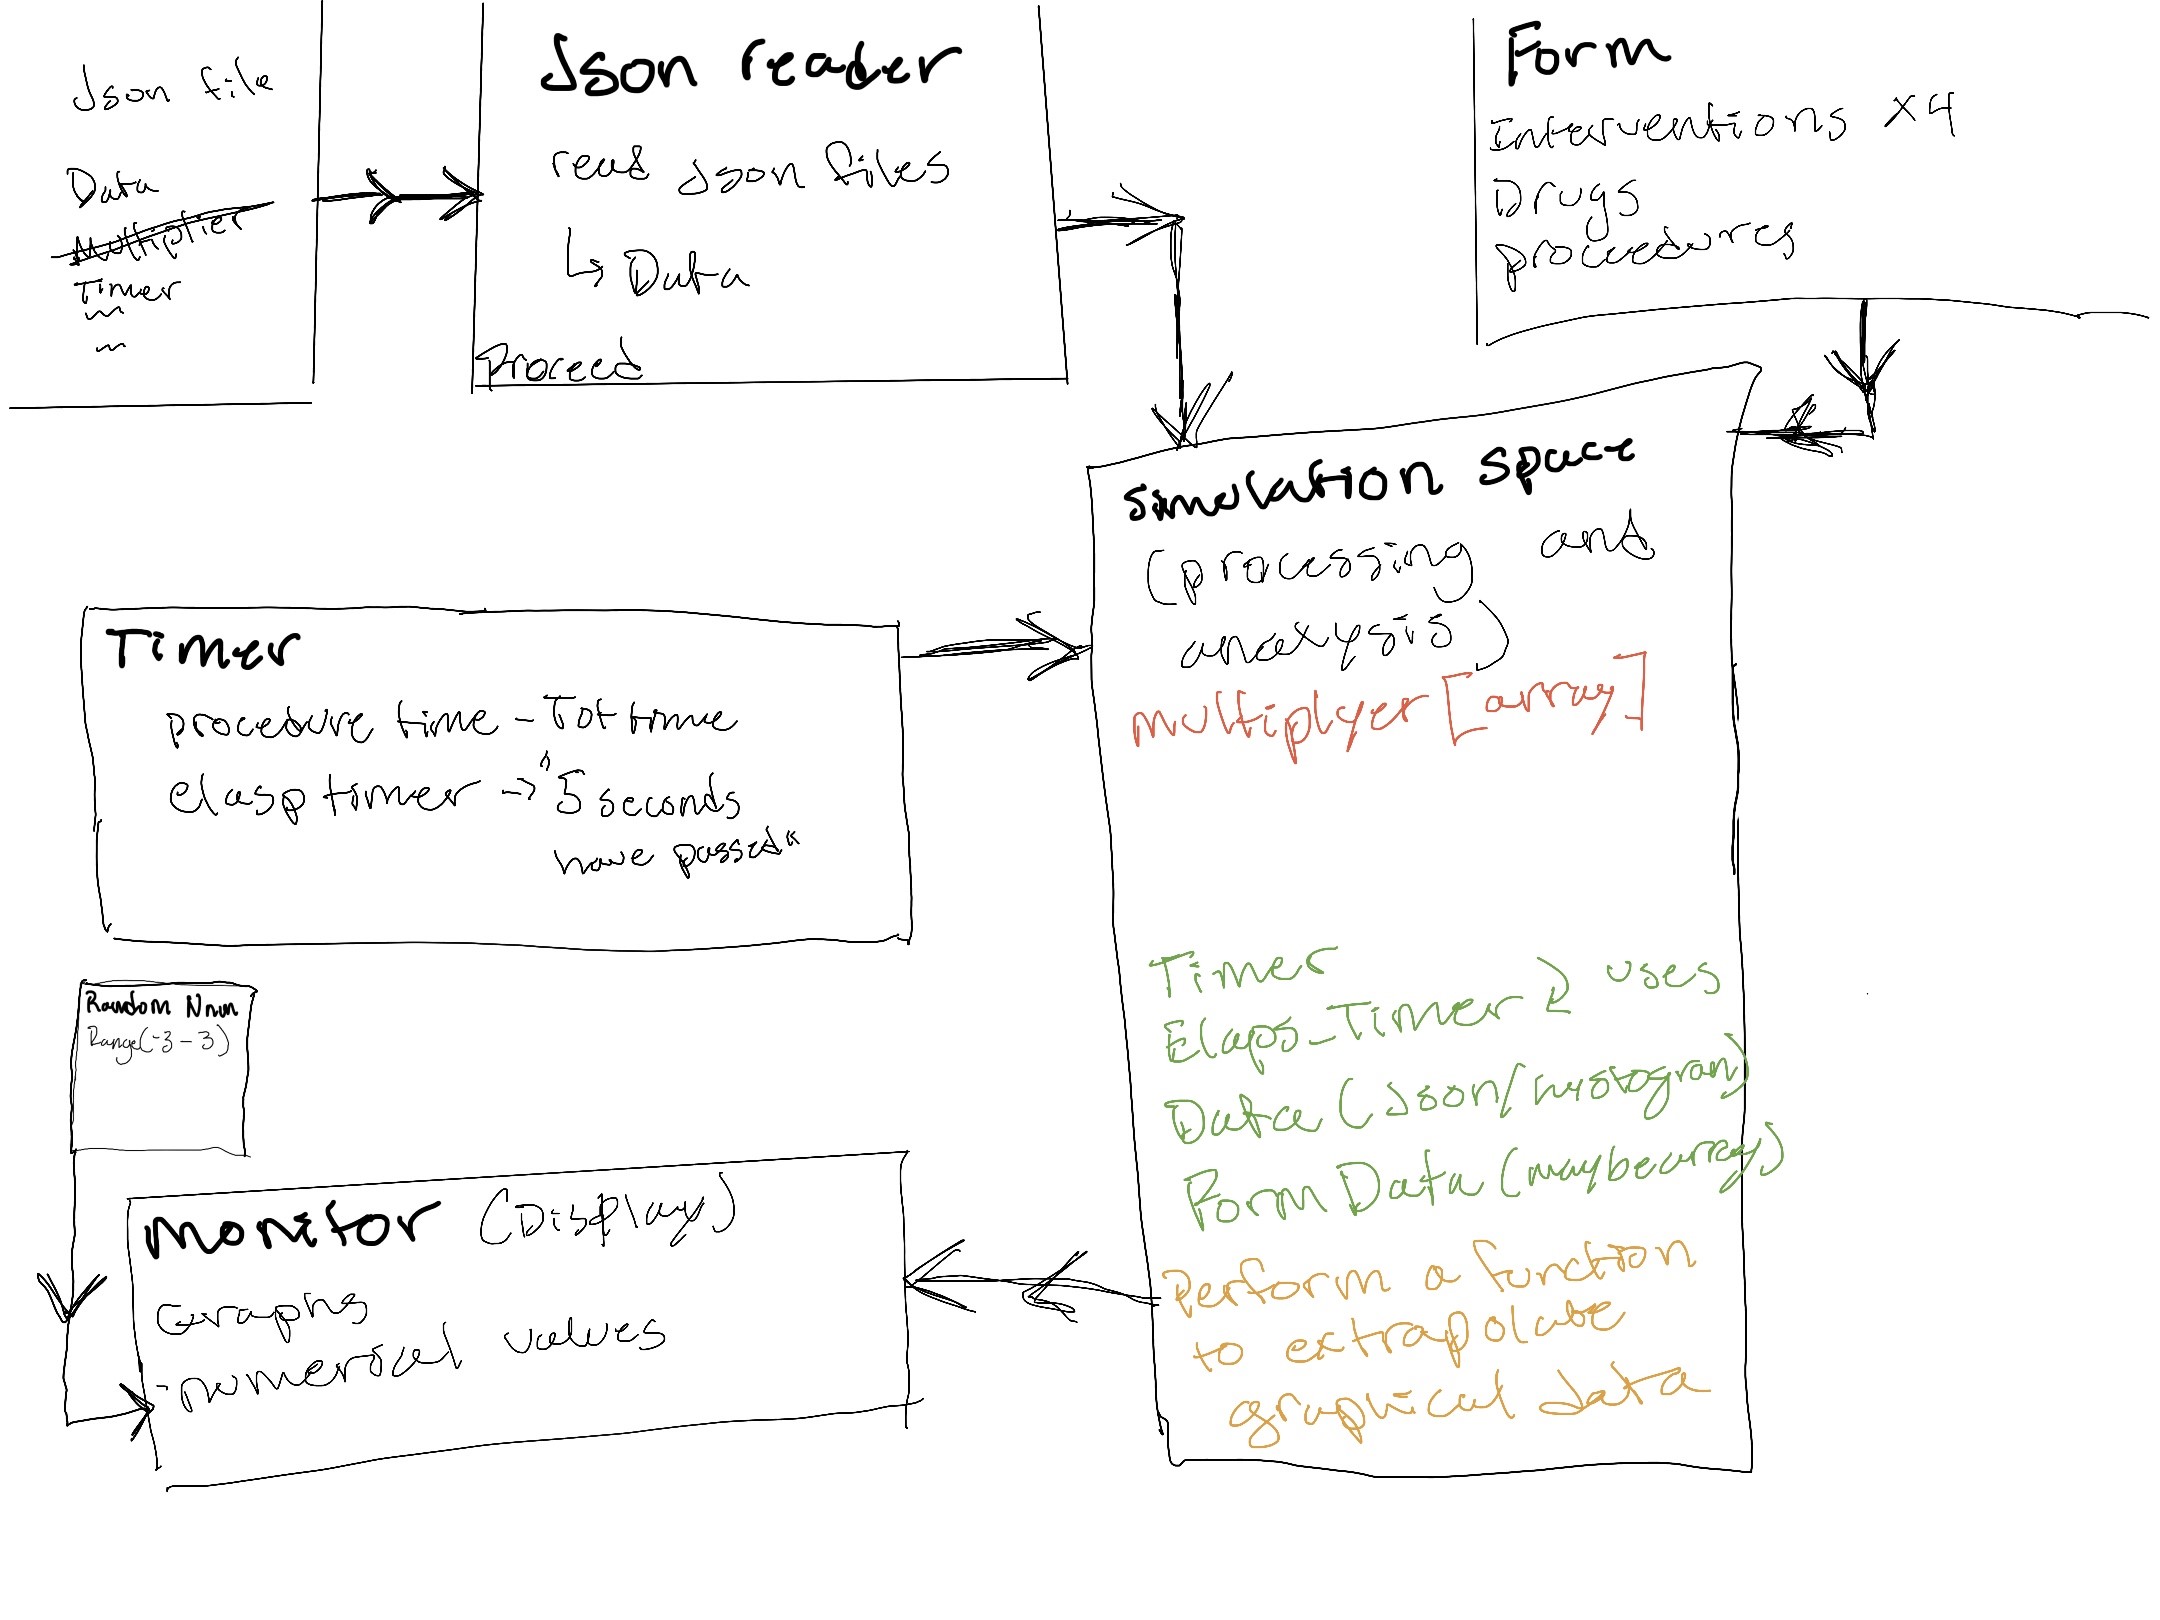 Json file
Data
Multiplier
Timer
Json reader
read Json files
↳ Data
Proceed
Form
Interventions x4
Drugs
procedures
Simulation space
(processing and
analysis)
multiplyer [array]
Timer
Elaps_Timer
uses
Data (Json/hystogram)
Form Data (maybe array)
Perform a function
to extrapolate
graphical data
Timer
procedure time - Tot time
elasp timer -> "5 seconds
have passed"
Random Num
Range(-3 - 3)
monitor (Display)
Graphs
-numerical values